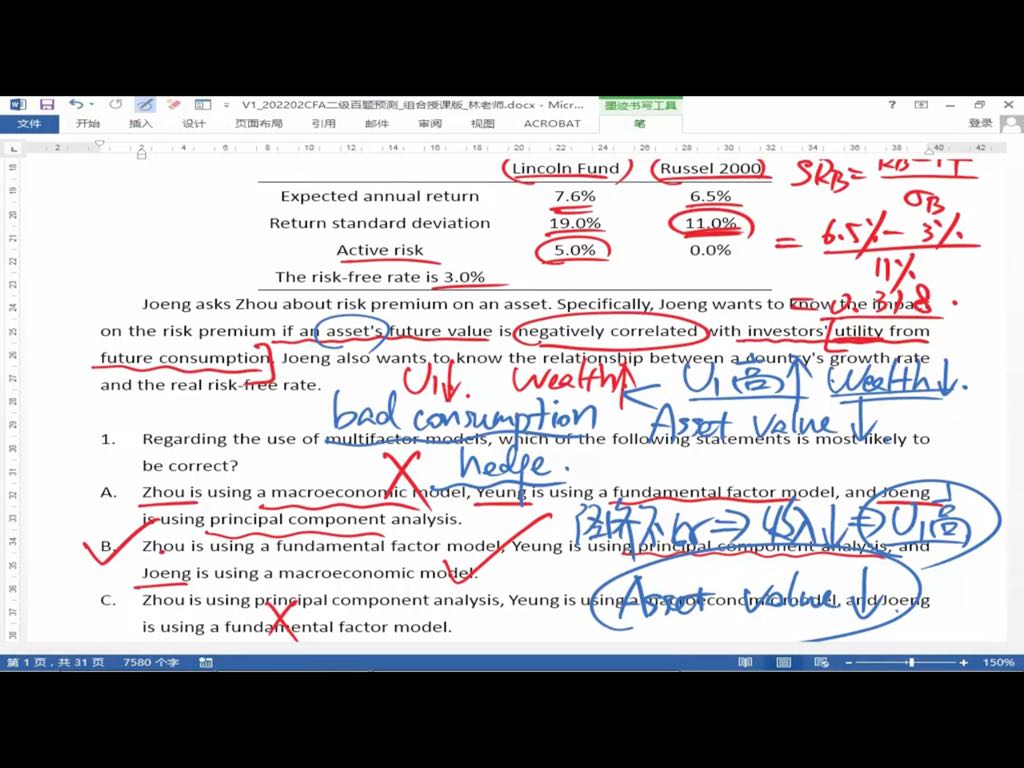 V1_202202CFA二级百题预测_组合授课版_林老师.docx - Micr...
墨迹书写工具
文件 开始 插入 设计 页面布局 引用 邮件 审阅 视图 ACROBAT 笔 登录
2 2 4 6 8 10 12 14 16 18 20 22 24 26 28 30 32 34 36 38 40 42
Lincoln Fund Russel 2000
Expected annual return 7.6% 6.5%
Return standard deviation 19.0% 11.0%
Active risk 5.0% 0.0%
The risk-free rate is 3.0%
SRB =
σB
= 6.5% - 3%
11%
= 0.318.
Joeng asks Zhou about risk premium on an asset. Specifically, Joeng wants to know the impact
on the risk premium if an asset's future value is negatively correlated with investors' utility from
future consumption. Joeng also wants to know the relationship between a country's growth rate
and the real risk-free rate.
U1↓. Wealth↑ U1高↑ Wealth↓.
bad consumption Asset value↓.
hedge.
1. Regarding the use of multifactor models, which of the following statements is most likely to
be correct?
A. Zhou is using a macroeconomic model, Yeung is using a fundamental factor model, and Joeng
is using principal component analysis.
经济不好⇒收入↓⇒U1高
B. Zhou is using a fundamental factor model, Yeung is using principal component analysis, and
Joeng is using a macroeconomic model.
Asset value↓.
C. Zhou is using principal component analysis, Yeung is using a macroeconomic model, and Joeng
is using a fundamental factor model.
第 1 页，共 31 页 7580 个字 150%